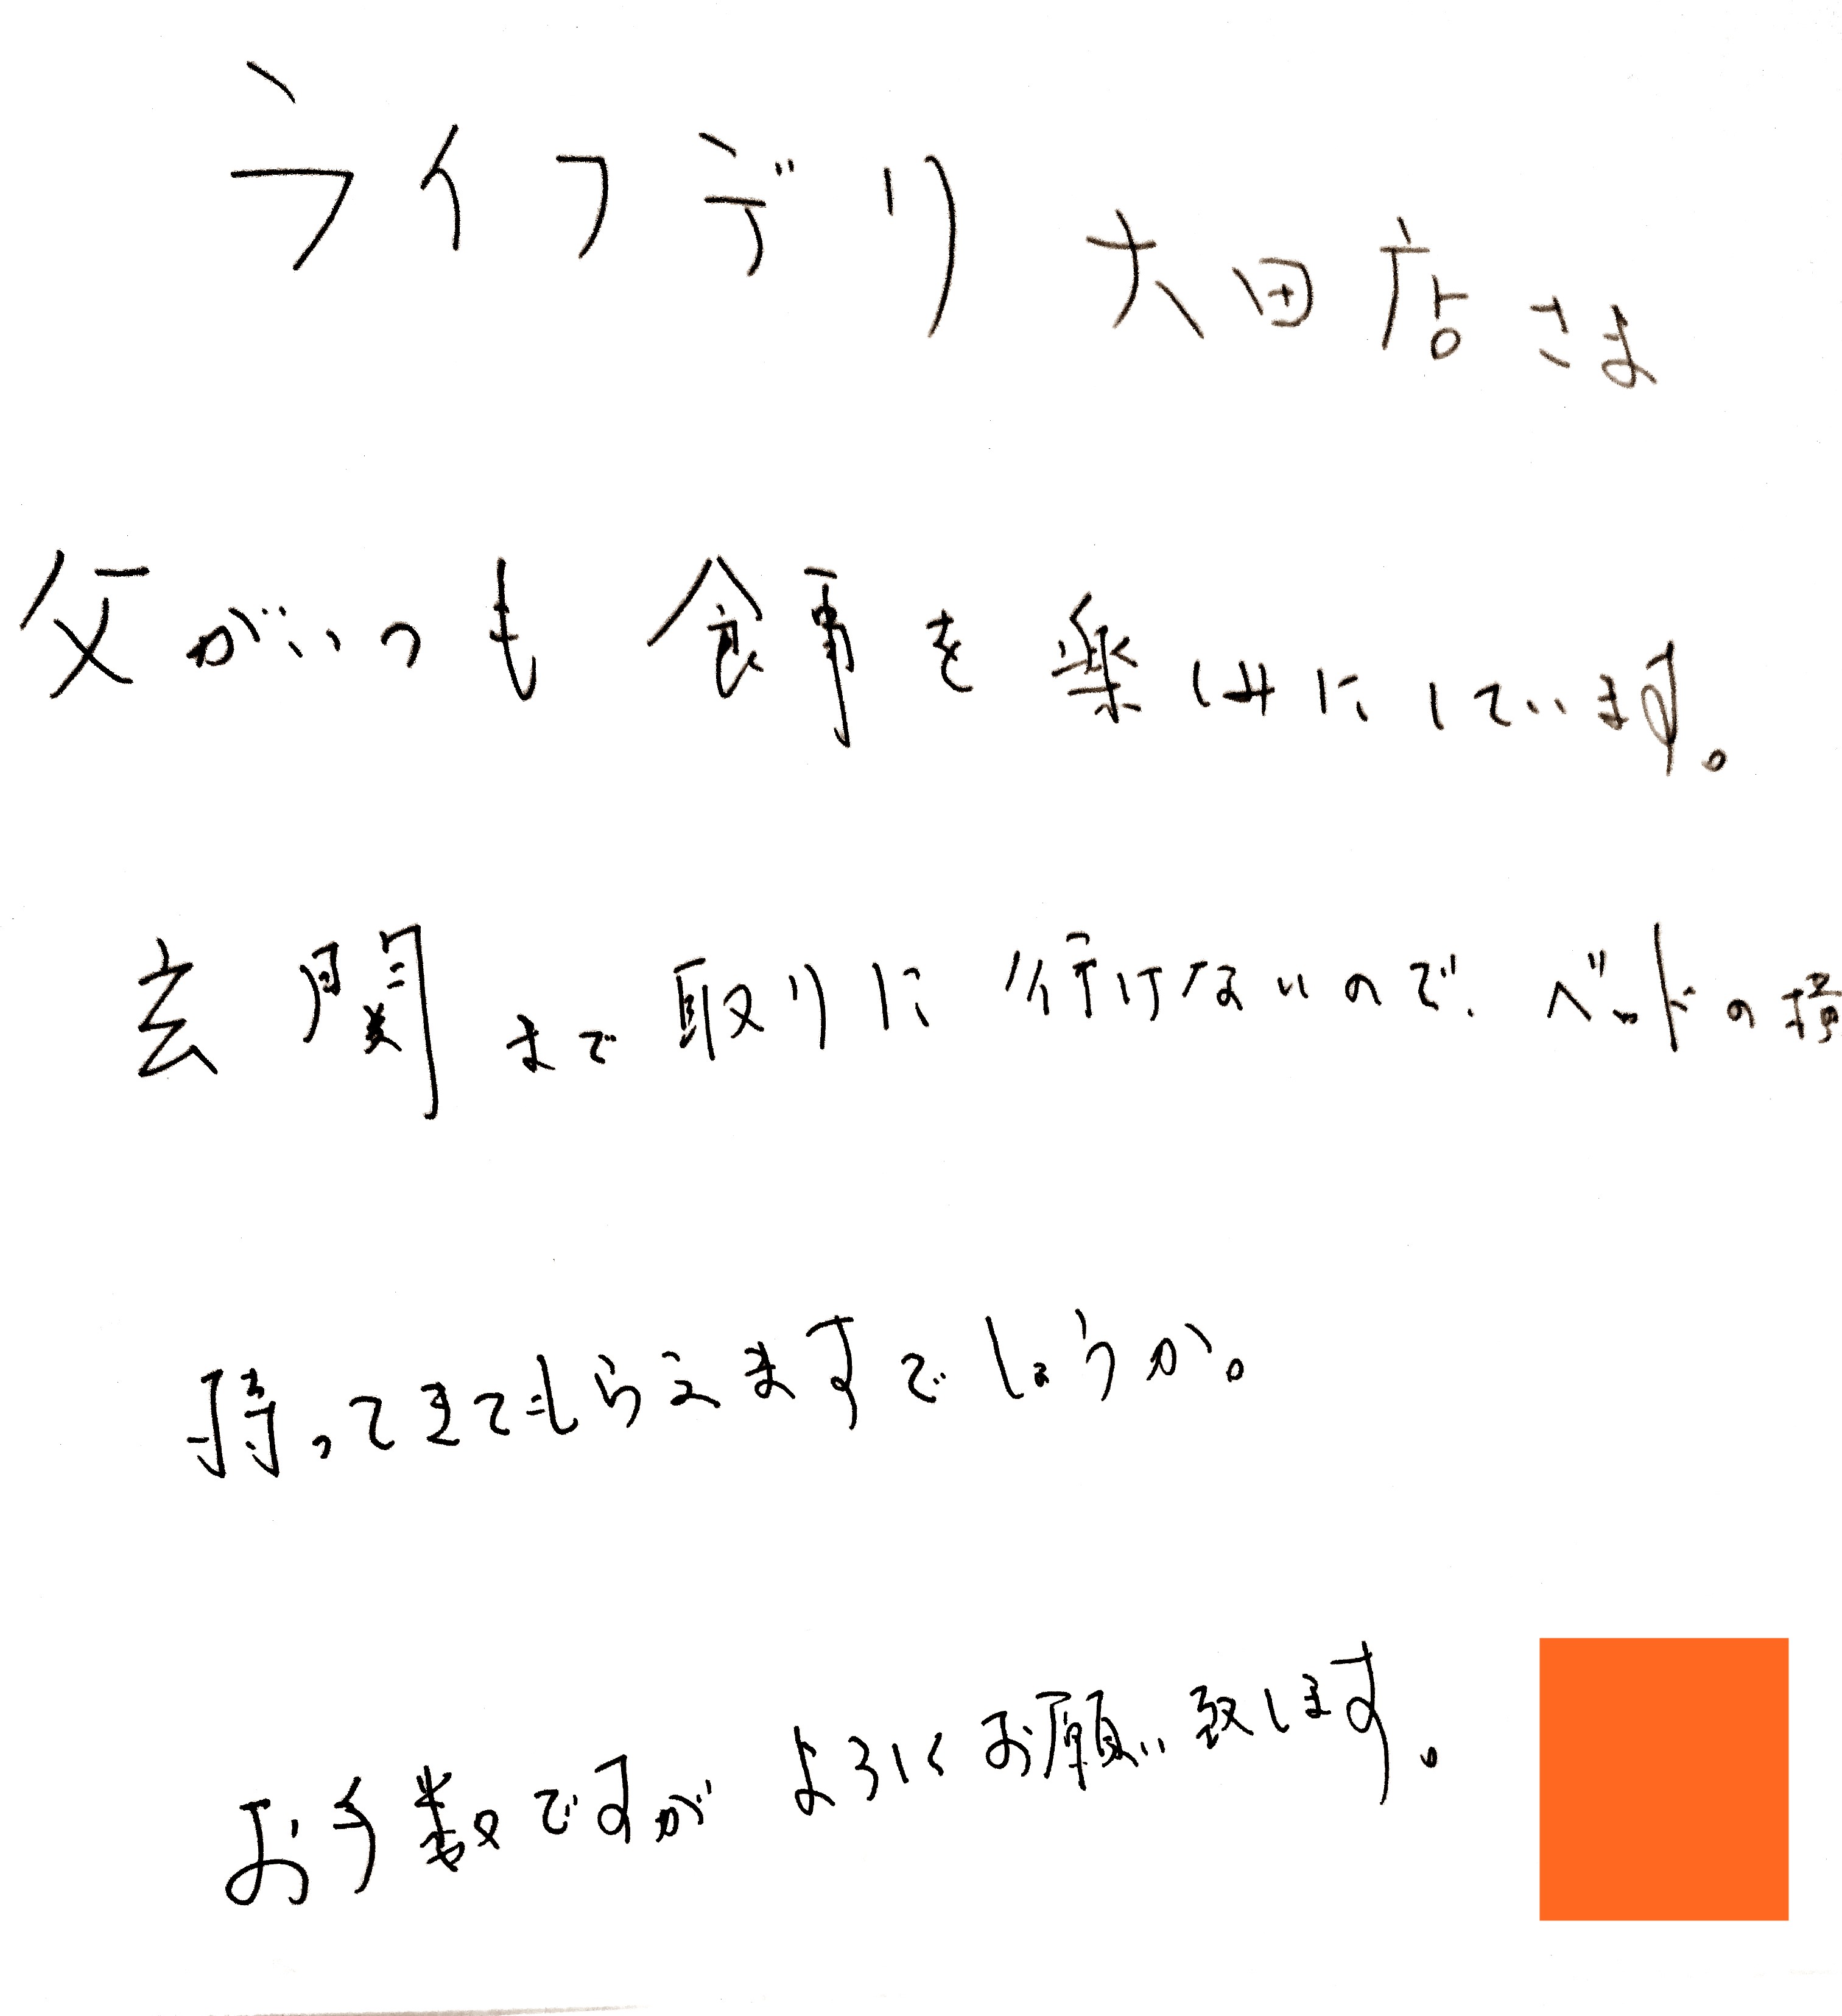 ライフデリ 大田店さま
父がいつも食事を楽しみにしています。
玄関まで取りに行けないので、ベッドの
持ってきてもらえますでしょうか。
お手数ですがよろしくお願い致します。